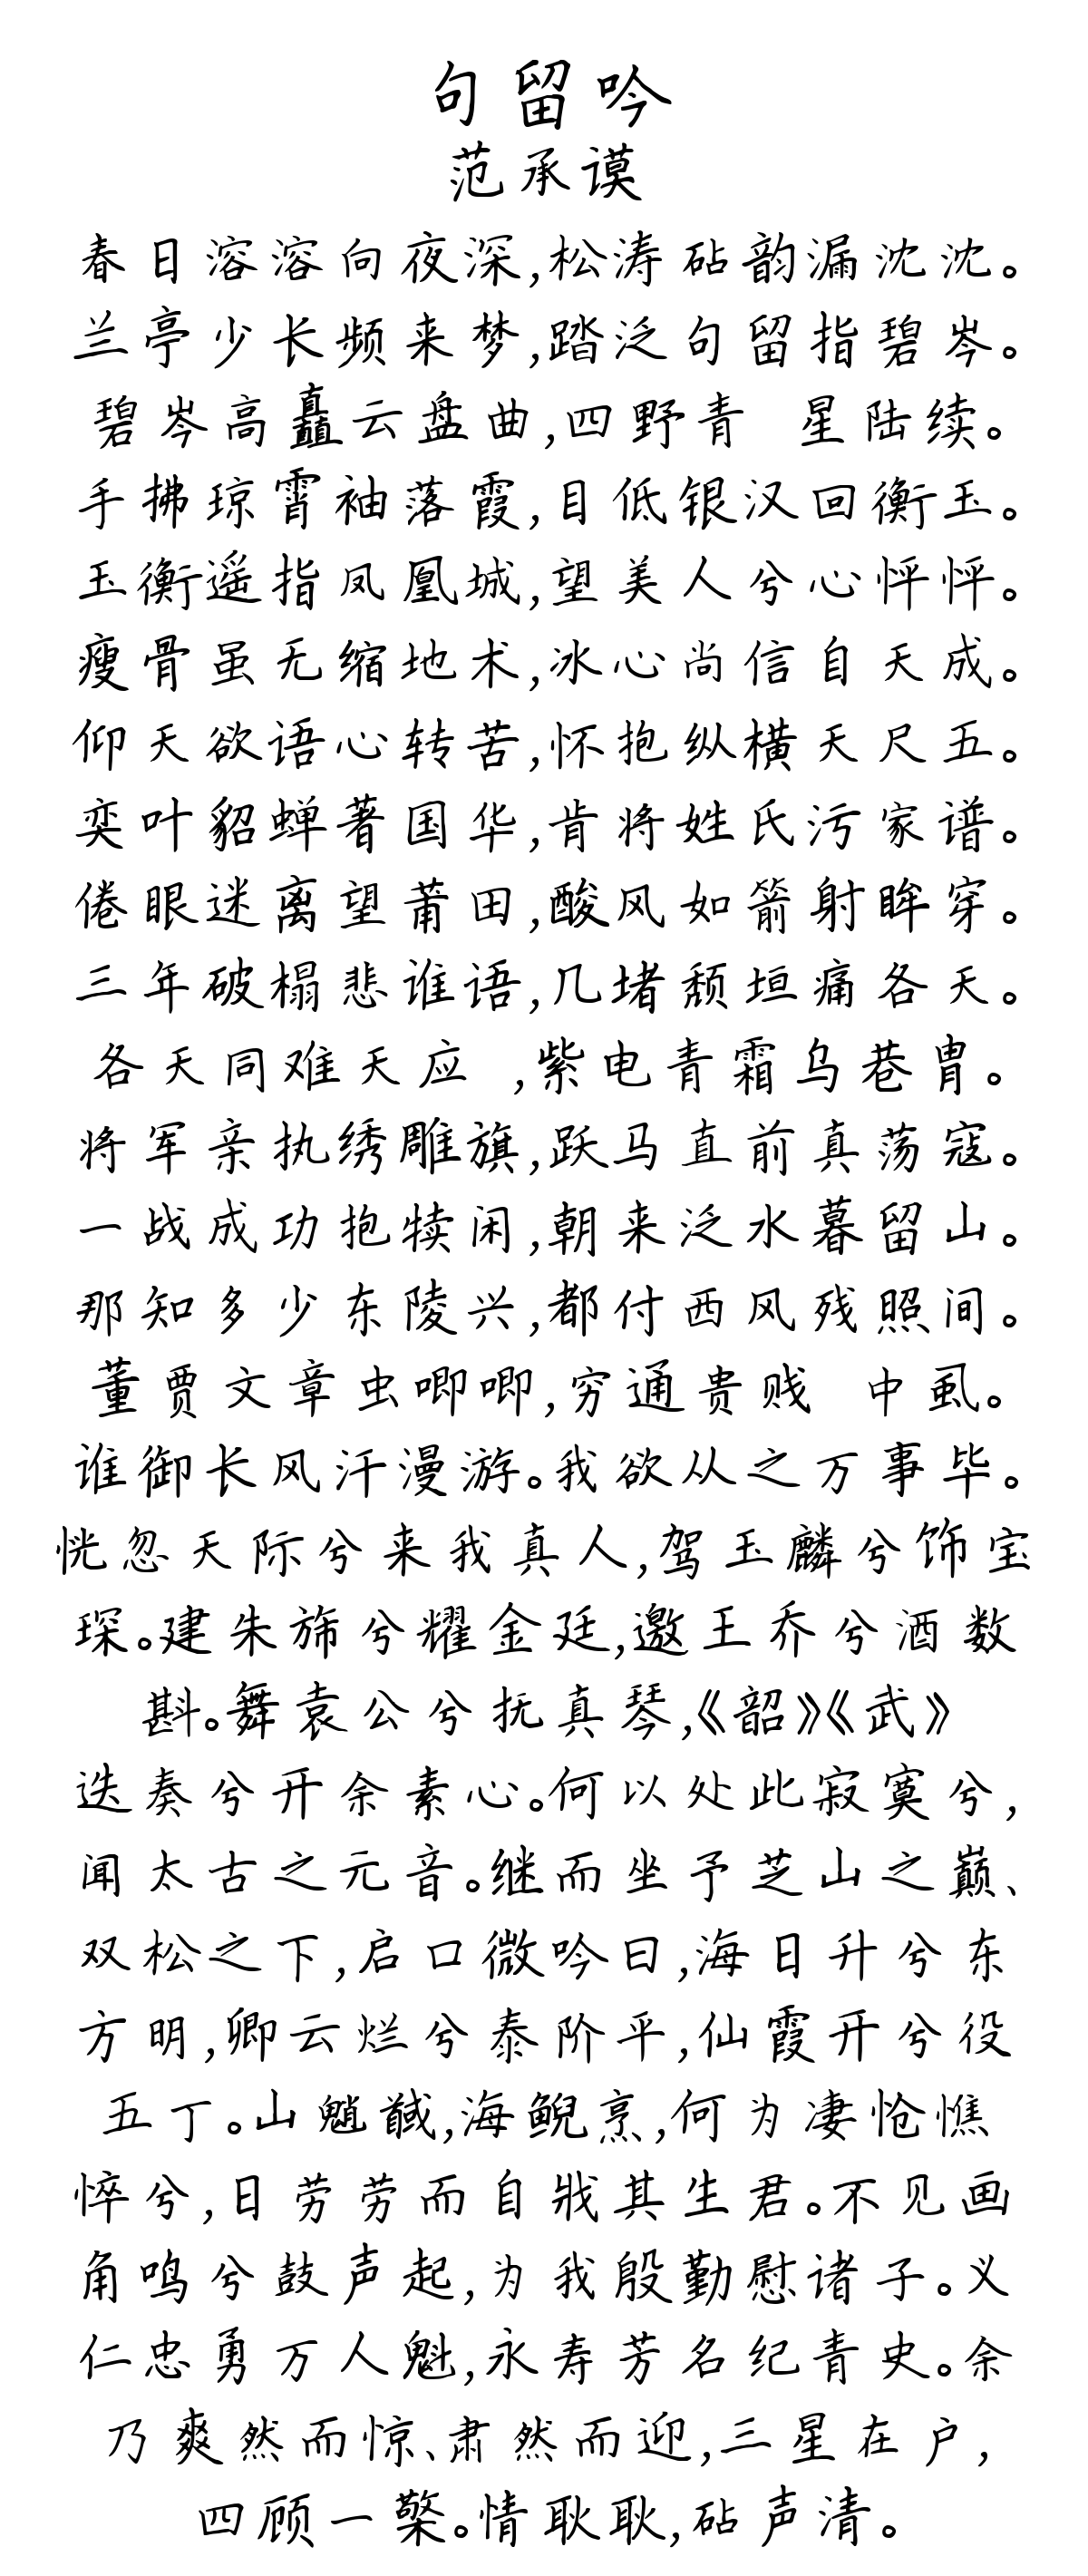 句留吟
范承谟
春日溶溶向夜深,松涛砧韵漏沈沈。
兰亭少长频来梦,踏泛句留指碧岑。
碧岑高矗云盘曲,四野青 星陆续。
手拂琼霄袖落霞,目低银汉回衡玉。
玉衡遥指凤凰城,望美人兮心怦怦。
瘦骨虽无缩地术,冰心尚信自天成。
仰天欲语心转苦,怀抱纵横天尺五。
奕叶貂蝉著国华,肯将姓氏污家谱。
倦眼迷离望莆田,酸风如箭射眸穿。
三年破榻悲谁语,几堵颓垣痛各天。
各天同难天应 ,紫电青霜乌巷胄。
将军亲执绣雕旗,跃马直前真荡寇。
一战成功抱犊闲,朝来泛水暮留山。
那知多少东陵兴,都付西风残照间。
董贾文章虫唧唧,穷通贵贱 中虱。
谁御长风汗漫游。我欲从之万事毕。
恍忽天际兮来我真人,驾玉麟兮饰宝
琛。建朱旆兮耀金廷,邀王乔兮酒数
斟。舞袁公兮抚真琴,《韶》《武》
迭奏兮开余素心。何以处此寂寞兮,
闻太古之元音。继而坐予芝山之巅、
双松之下,启口微吟曰,海日升兮东
方明,卿云烂兮泰阶平,仙霞开兮役
五丁。山魈馘,海鲵烹,何为凄怆憔
悴兮,日劳劳而自戕其生君。不见画
角鸣兮鼓声起,为我殷勤慰诸子。义
仁忠勇万人魁,永寿芳名纪青史。余
乃爽然而惊、肃然而迎,三星在户,
四顾一檠。情耿耿,砧声清。